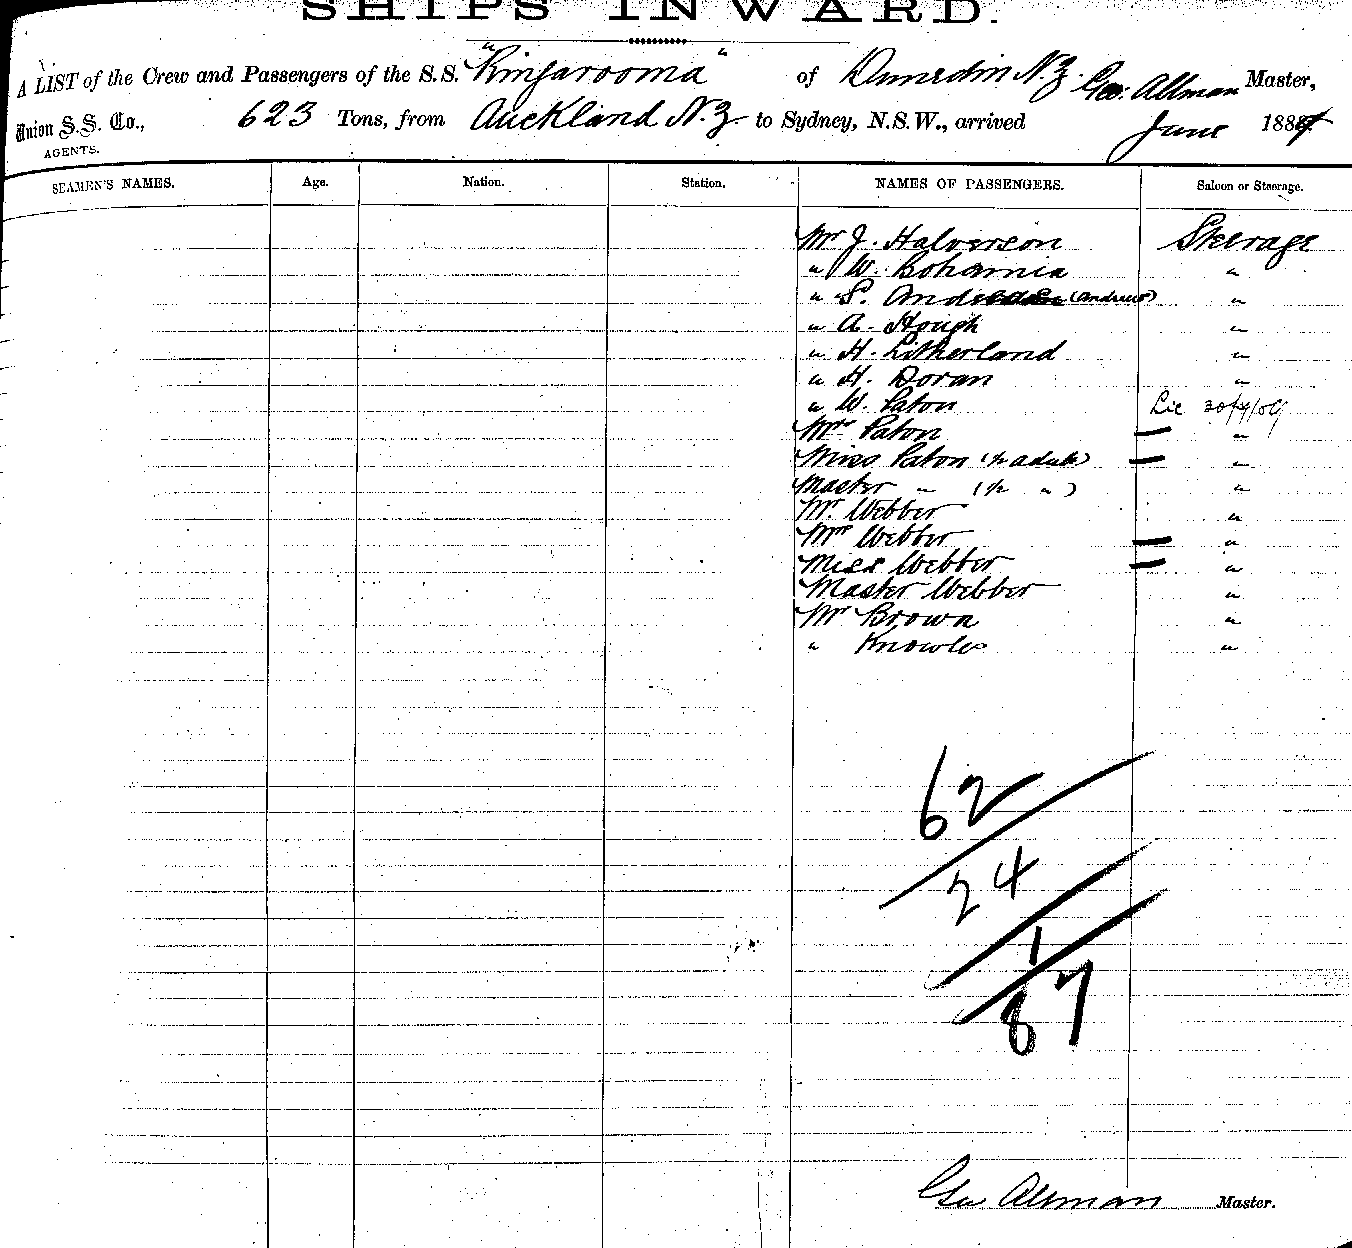 SHIPS INWARD.
A LIST of the Crew and Passengers of the S.S. "Ringarooma" of Dunedin N.Z. Geo. Allman Master,
Union S.S. Co., 623 Tons, from Auckland N.Z to Sydney, N.S.W., arrived June 188
AGENTS.
SEAMEN'S NAMES. Age. Nation. Station. NAMES OF PASSENGERS. Saloon or Steerage.
Mr J. Halverson Steerage
" W. Bohamia "
" S. (Andrews) "
" A. Hough "
" H. Litherland "
" H. Doran "
" W. Paton Lic
Mrs Paton "
Miss Paton (½ adult) "
Master " (½ ") "
Mr. Webber "
Mrs Webber "
Miss Webber "
Master Webber "
Mr Brown "
" Knowles "
62
24
1
87
Geo Allman Master.